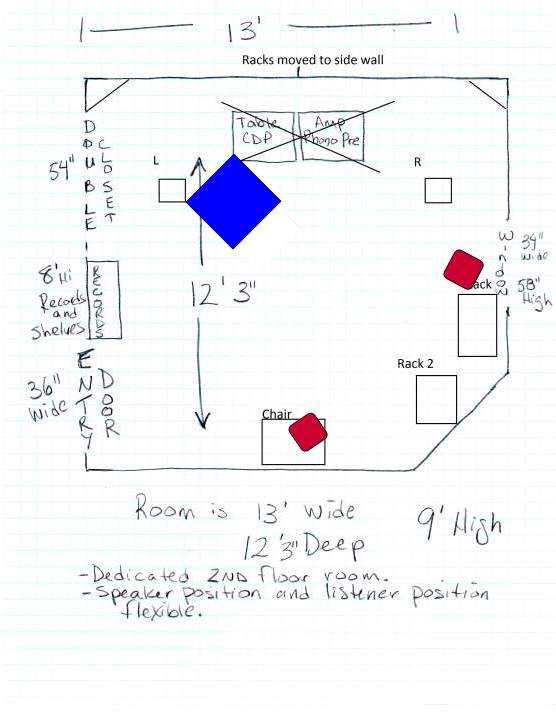 13'
Racks moved to side wall
Table
CDP
Amp
Phono Pre
L
R
DOUBLE
CLOSET
54"
Window
34"
wide
58"
High
8' Hi
Records
and
Shelves
RECORDS
12' 3"
ack
Rack 2
Chair
36"
wide
ENTRY
DOOR
Room is 13' wide
12' 3" Deep
9' High
-Dedicated 2ND floor room.
-Speaker position and listener position
flexible.